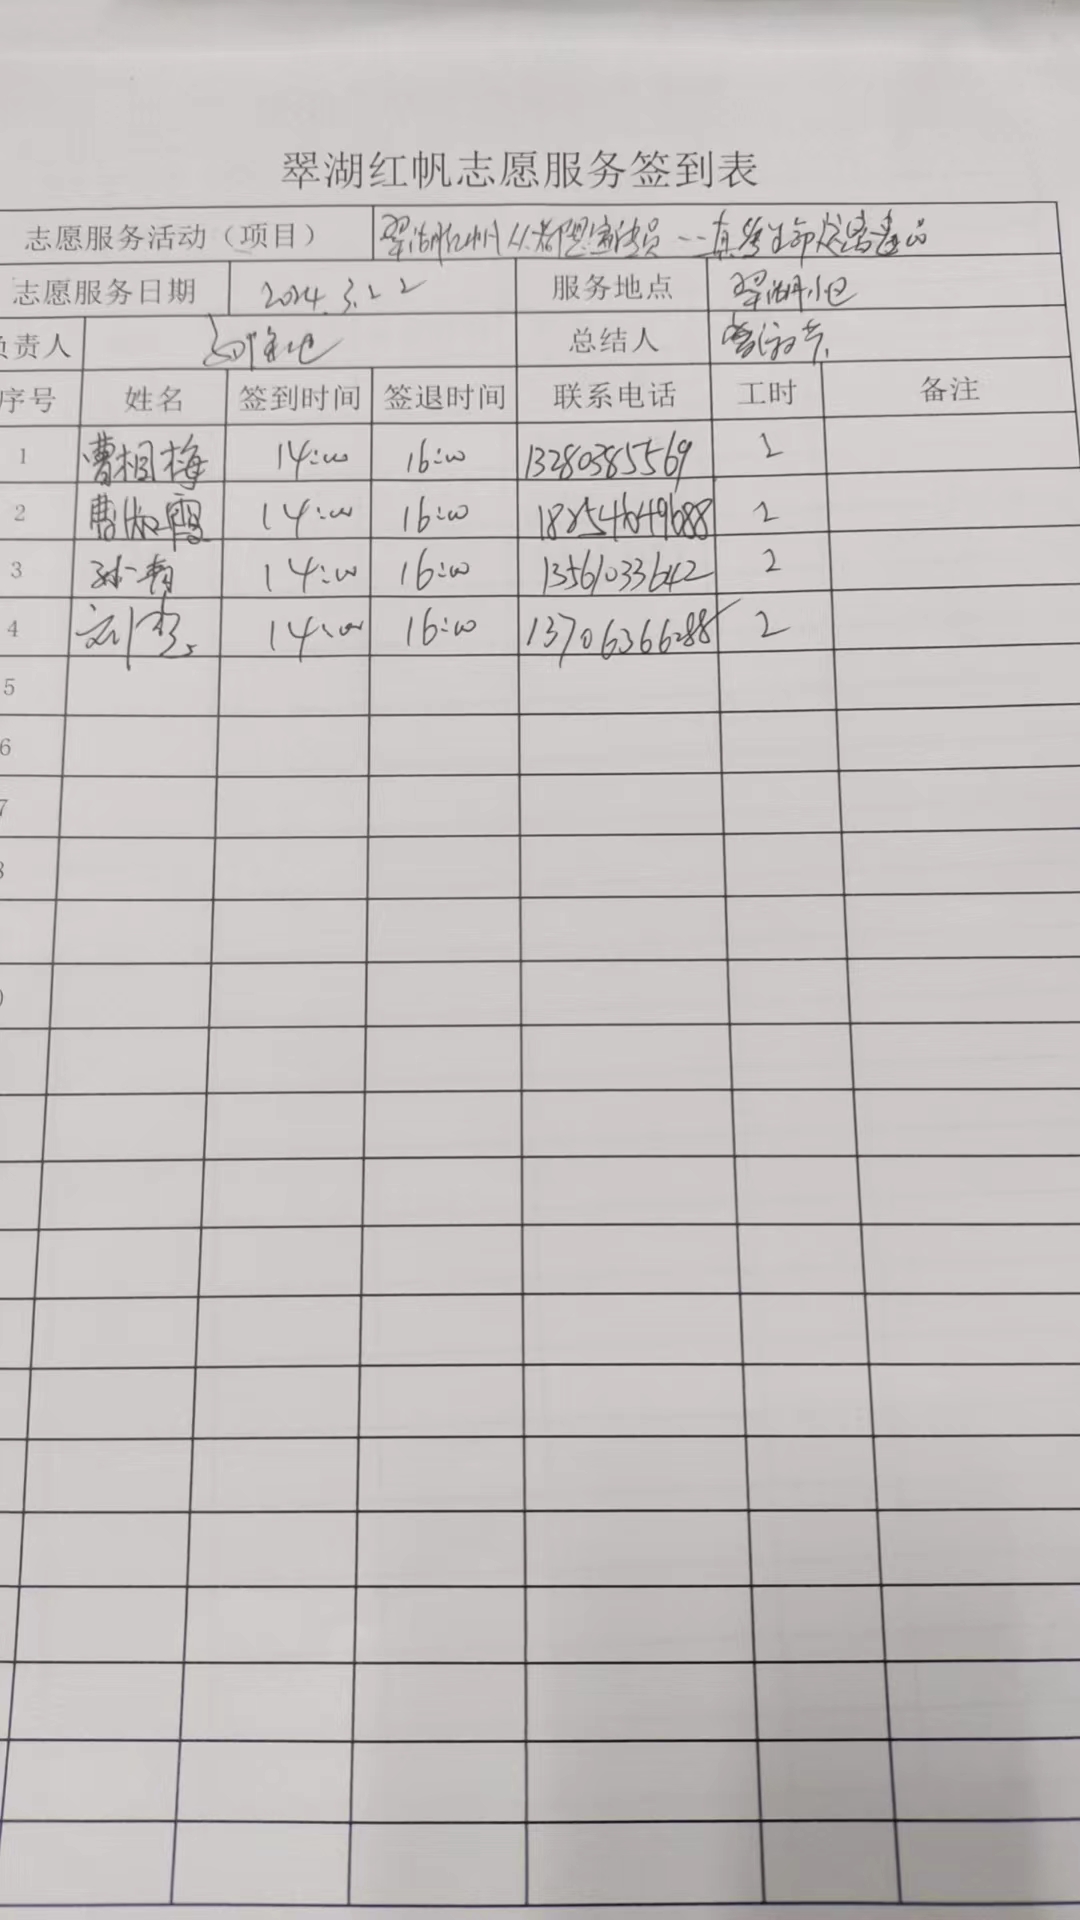 翠湖红帆志愿服务签到表
志愿服务活动（项目） 翠湖红帆人人都是宣传员--真爱生命远离毒品
志愿服务日期 2024.3.22 服务地点 翠湖小区
负责人 总结人
序号 姓名 签到时间 签退时间 联系电话 工时 备注
1 曹相梅 14:00 16:00 13280385569 2
2 曹淑霞 14:00 16:00 2
3 孙青 14:00 16:00 13561033642 2
4 刘 14:00 16:00 13706366288 2
5
6
7
8